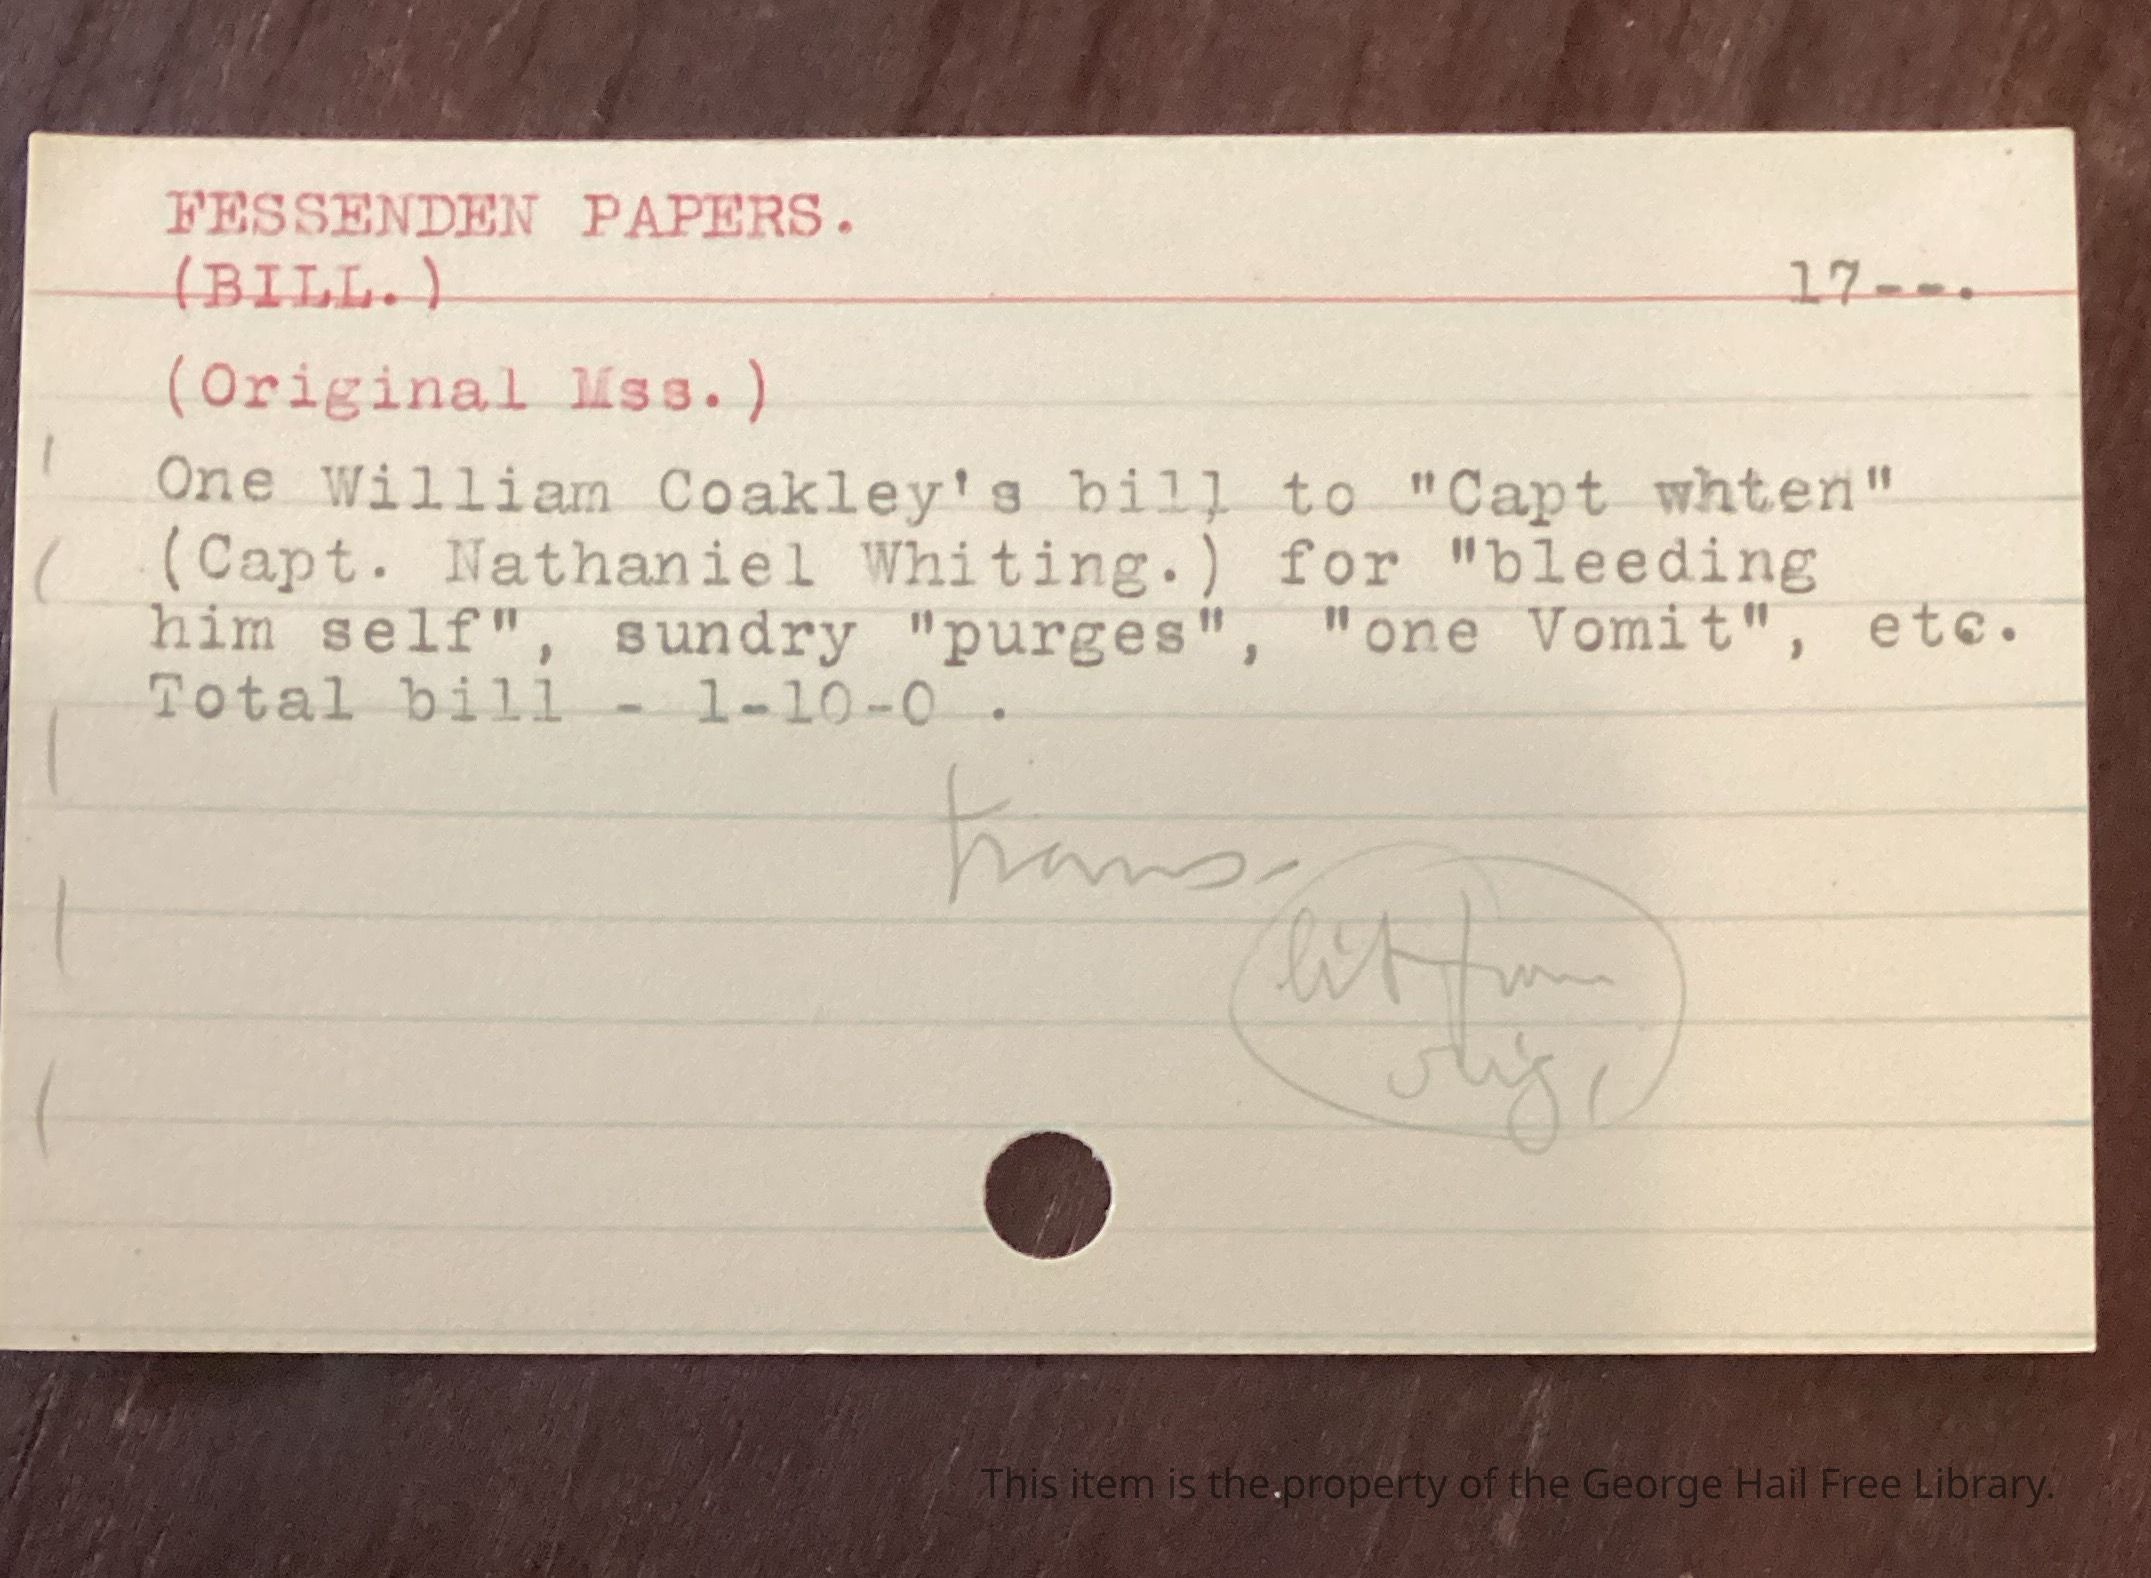 FESSENDEN PAPERS.
(BILL.)
17--.
(Original Mss.)
One William Coakley's bill to "Capt whten"
(Capt. Nathaniel Whiting.) for "bleeding
him self", sundry "purges", "one Vomit", etc.
Total bill - 1-10-0 .
trans-
lit from
orig,
This item is the property of the George Hail Free Library.